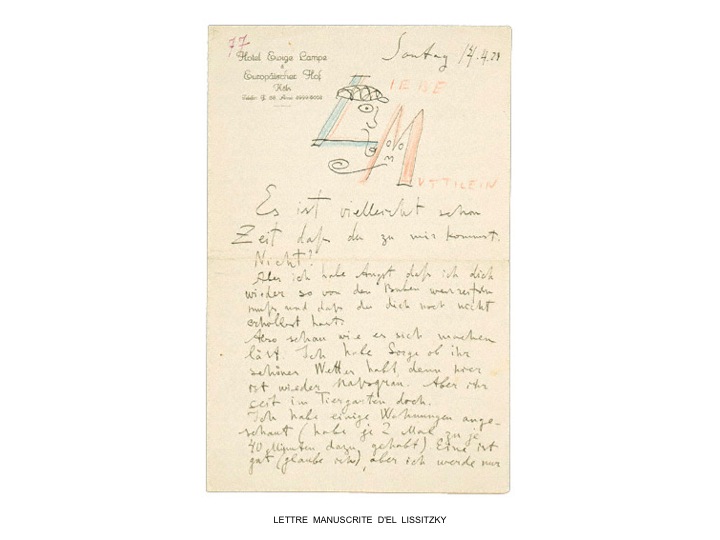 77
Hotel Ewige Lampe
&
Europäischer Hof
Köln
Sontag 17.4.28
LIEBE
MUTTILEIN
Es ist vielleicht schon
Zeit daß du zu mir kommst.
Nicht?
Aber ich habe Angst daß ich dich
wieder so von den Buben
muß, und daß du dich noch nicht
erhollest hast.
Also schau wie es sich machen
läst. Ich habe Sorge ob ihr
schönes Wetter habt, denn hier
ist wieder Aber ihr
seit im Tiergarten doch.
Ich habe einige Wohnungen ange-
schaut (habe je 2 Mal zu je
40 Minuten dazu gehabt). Eine ist
gut (glaube ich), aber ich werde nur
LETTRE MANUSCRITE D'EL LISSITZKY